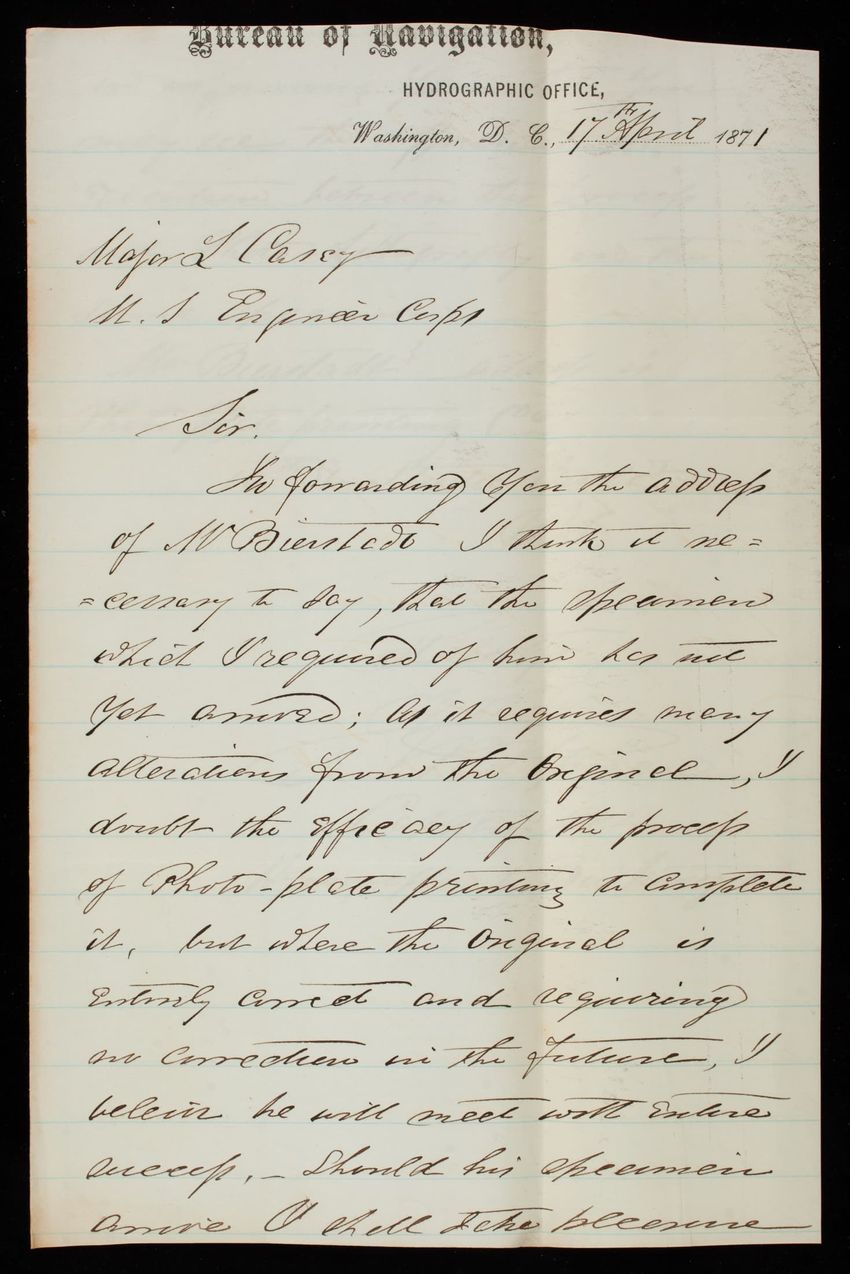 Bureau of Navigation,
HYDROGRAPHIC OFFICE,
Washington, D. C., 17th April 1871
Major L Casey
U. S Engineer Corps
Sir.
In forwarding you the address
of Mr Bierstadt I think it ne=
=cessary to say, that the specimen
which I required of him has not
yet arrived; as it requires many
alterations from the Original, I
doubt the efficacy of the process
of Photo-plate printing to complete
it, but where the Original is
entirely correct and requiring
no correction in the future, I
beleive he will meet with entire
success,- Should his specimen
arrive I shall take pleasure